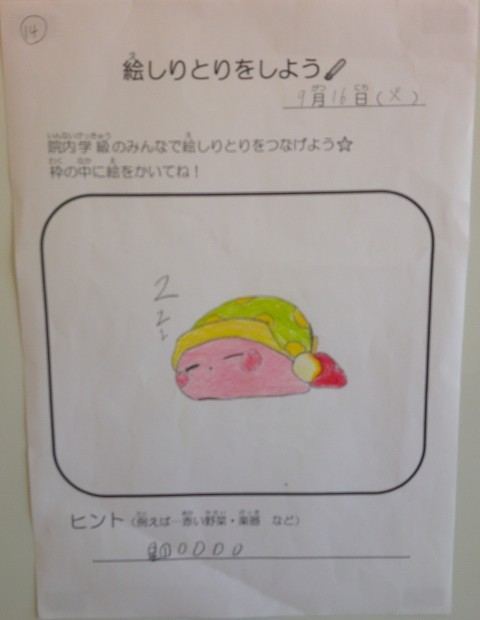 14
絵しりとりをしよう
9月16日(火)
院内学級のみんなで絵しりとりをつなげよう☆
枠の中に絵をかいてね!
Z
Z
Z
ヒント(例えば…赤い野菜・楽器 など)